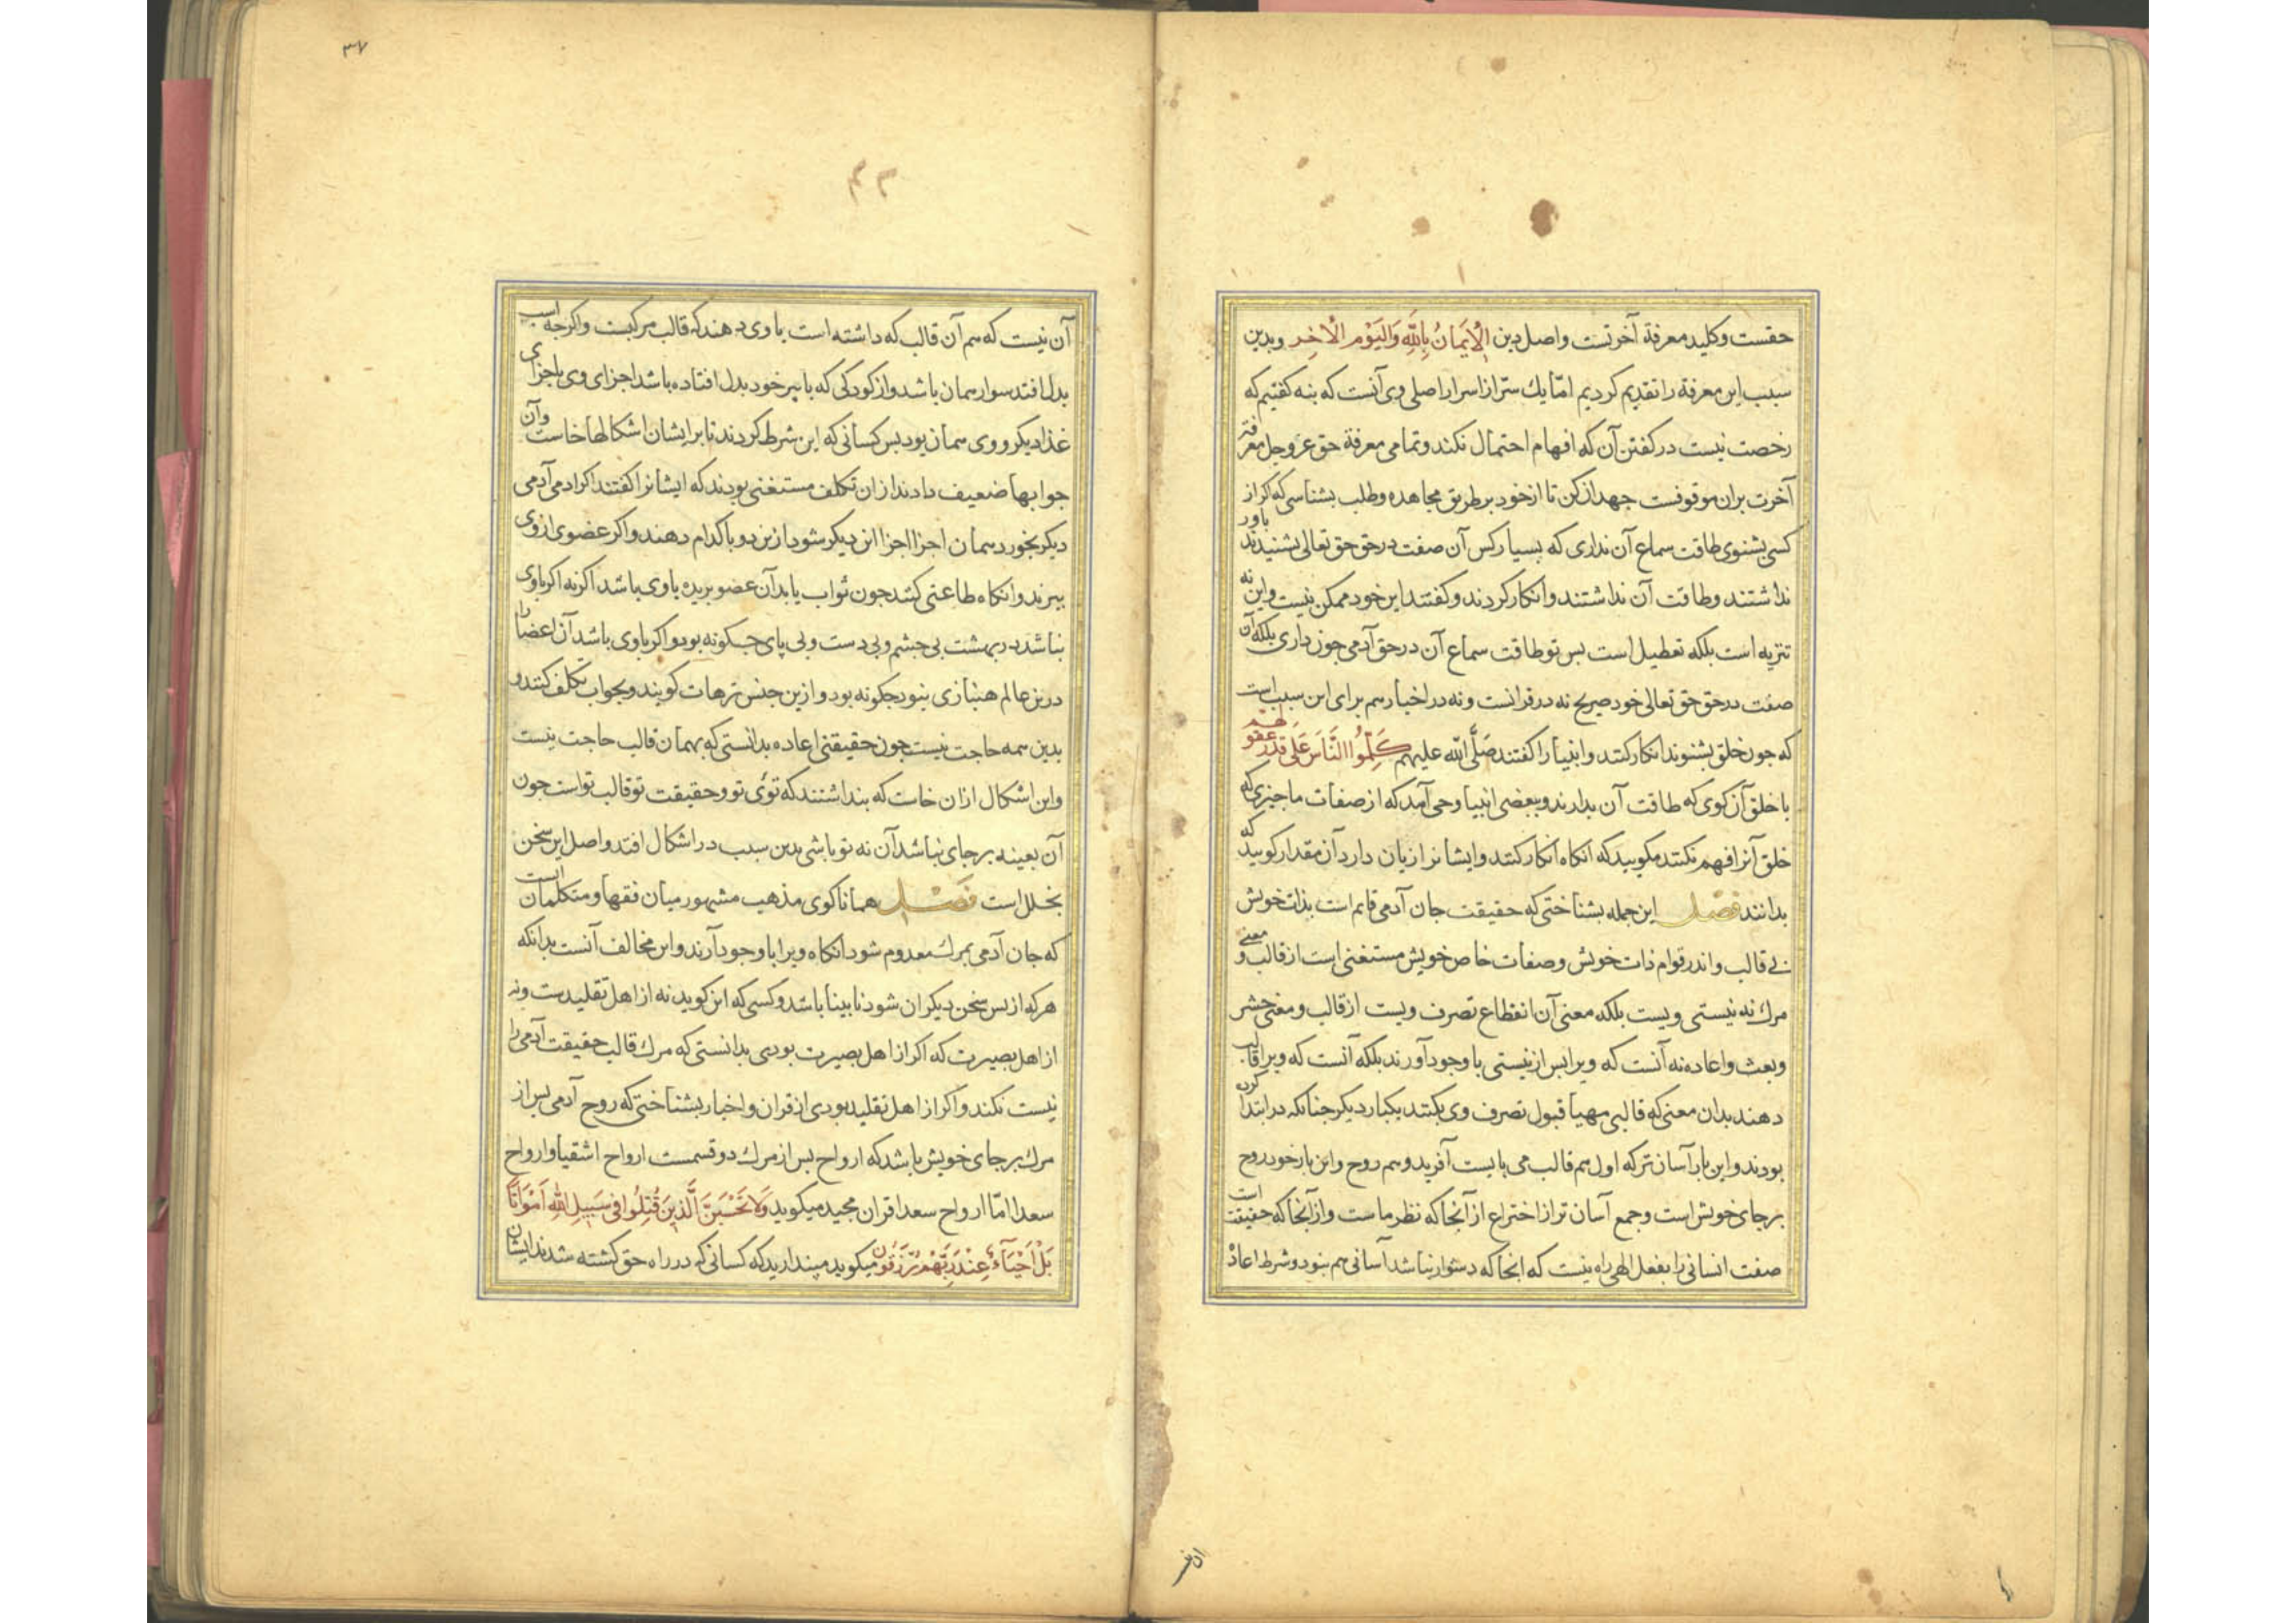 حقست وکلید معرفة آخرتست واصل دین الْاِیمَانُ بِاللّٰهِ وَالیَوْمِ الْاٰخِرِ وبدین
سبب این معرفة را تقدیم کردیم امّا یك سرّ از اسرار اصلی وی آنست که بنه کفتیم که
رخصت نیست در کفتن آن که افهام احتمال نکند وتمامی معرفة حق عز وجل ومعرفة
آخرت بران موقوفست جهد ازکن تا از خود بر طریق مجاهده وطلب بشناسی که اکر از
کسی بشنوی طاقت سماع آن نداری که بسیار کس آن صفت در حق حق تعالی بشنیدند باور
نداشتند وطاقت آن نداشتند وانکار کردند وکفتند این خود ممکن نیست واین نه
تنزیه است بلکه تعطیل است بس تو طاقت سماع آن در حق آدمی جون داری بلکه آن
صفت در حق حق تعالی خود صریح نه در قرانست ونه در اخبار هم برای این سبب است
که جون خلق بشنوند انکار کنند وانبیا را کفتند صَلَّی اللّه علیهم کَلِّمُوا النَّاسَ عَلی قَدْرِ عُقُولِهِم
با خلق آن کوی که طاقت آن بدارند وببعضی انبیا وحی آمد که از صفات ما جیزی که
خلق آنرا فهم نکنند مکویید که انکاه انکار کنند وایشانرا زیان دارد آن مقدار کویید که
بدانند فصل این جمله بشناختی که حقیقت جان آدمی قایم است بذات خویش
بی قالب واندر قوام ذات خویش وصفات خاص خویش مستغنی است از قالب ومعنی
مرك نه نیستی ویست بلکه معنی آن انقطاع تصرف ویست از قالب ومعنی حشر
وبعث واعاده نه آنست که ویرا بس از نیستی با وجود آورند بلکه آنست که ویرا قالب
دهند بدان معنی که قالبی مهیا قبول تصرف وی بکنند یکبار دیکر جنانکه در ابتدا کرده
بودند واین بار آسان تر که اول هم قالب می بایست آفرید وهم روح واین بار خود روح
بر جای خویش است وجمع آسان تر از اختراع از آنجا که نظر ماست واز آنجا که حقیقت است
صفت انسانی را بفعل الهی راه نیست که انجا که دشوار نباشد آسانی هم نبود وشرط اعادْ
ان نیس
۳۷
آن نیست که هم آن قالب که داشته است باوی دهند که قالب مرکبست واکرجه اسب
بدل افتد سوار همان باشد واز کودکی که با پیر خود بدل افتاده باشد اجزای وی باجزای
غذا دیکر ووی همان بود بس کسانی که این شرط کردند تا بر ایشان اشکالها خاست وآن
جوابها ضعیف دادند ازان تکلف مستغنی بودند که ایشانرا کفتند اکر ادمی آدمی
دیکر بخورد همان اجزا اجزا این دیکر شود ازین دو با کدام دهند واکر عضوی از وی
ببرند وانکاه طاعتی کند جون ثواب یابد آن عضو بریده باوی باشد اکر نه اکر باوی
نباشد در بهشت بی جشم وبی دست وبی پای جکونه بود واکر باوی باشد آن اعضا را
درین عالم هنبازی نبود جکونه بود وازین جنس ترهات کویند وبجواب تکلف کنند و
بدین همه حاجت نیست جون حقیقتی اعاده بدانستی که بهمان قالب حاجت نیست
واین اشکال ازان خاست که بنداشتند که توئی تو وحقیقت تو قالب تو است جون
آن بعینه بر جای نباشد آن نه تو باشی بدین سبب در اشکال افتد واصل این سخن
بخلل است فَصْل همانا کوی مذهب مشهور میان فقها ومتکلمان است
که جان آدمی بمرك معدوم شود انکاه ویرا با وجود آرند واین مخالف آنست بدانکه
هرکه از بس سخن دیکران شود نابینا باشد وکسی که این کوید نه از اهل تقلیدست ونه
از اهل بصیرت که اکر از اهل بصیرت بودی بدانستی که مرك قالب حقیقت آدمی را
نیست نکند واکر از اهل تقلید بودی از قران واخبار بشناختی که روح آدمی بس از
مرك بر جای خویش باشد که ارواح بس از مرك دو قسمست ارواح اشقیا وارواح
سعدا امّا ارواح سعدا قران مجید میکوید وَلَا تَحْسَبَنَّ الَّذِینَ قُتِلُوا فِی سَبِیلِ اللّٰهِ اَمْوَاتًا
بَلْ اَحْیَآءٌ عِنْدَ رَبِّهِمْ یُرْزَقُونَ میکوید مپندارید که کسانی که در راه حق کشته شدند ایشان